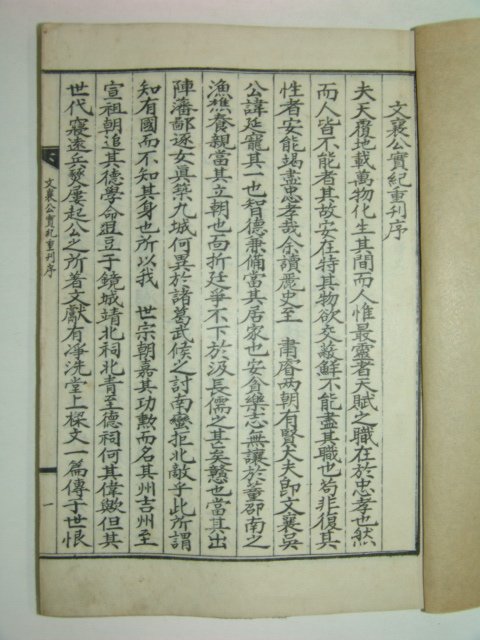 文襄公實紀重刊序
夫天覆地載萬物化生其間而人惟最靈者天賦之職在於忠孝也然
而人皆不能者其故安在特其物欲交蔽鮮不能盡其職也苟非復其
性者安能竭盡忠孝哉余讀麗史至 肅睿兩朝有賢大夫卽文襄吳
公諱延寵其一也智德兼備當其居家也安貧樂志無讓於董邵南之
漁樵養親當其立朝也面折廷爭不下於汲長儒之甚矣戇也當其出
陣潘鄙逐女眞築九城何異於諸葛武候之討南蠻拒北敵乎此所謂
知有國而不知其身也所以我 世宗朝嘉其功勲而名其州吉州至
宣祖朝追其德學命俎豆于鏡城靖北祠北靑至德祠何其偉歟但其
世代寖遠兵燹屢起公之所著文獻有淨洗堂上樑文一篇傳于世恨
文襄公實紀重刊序
一